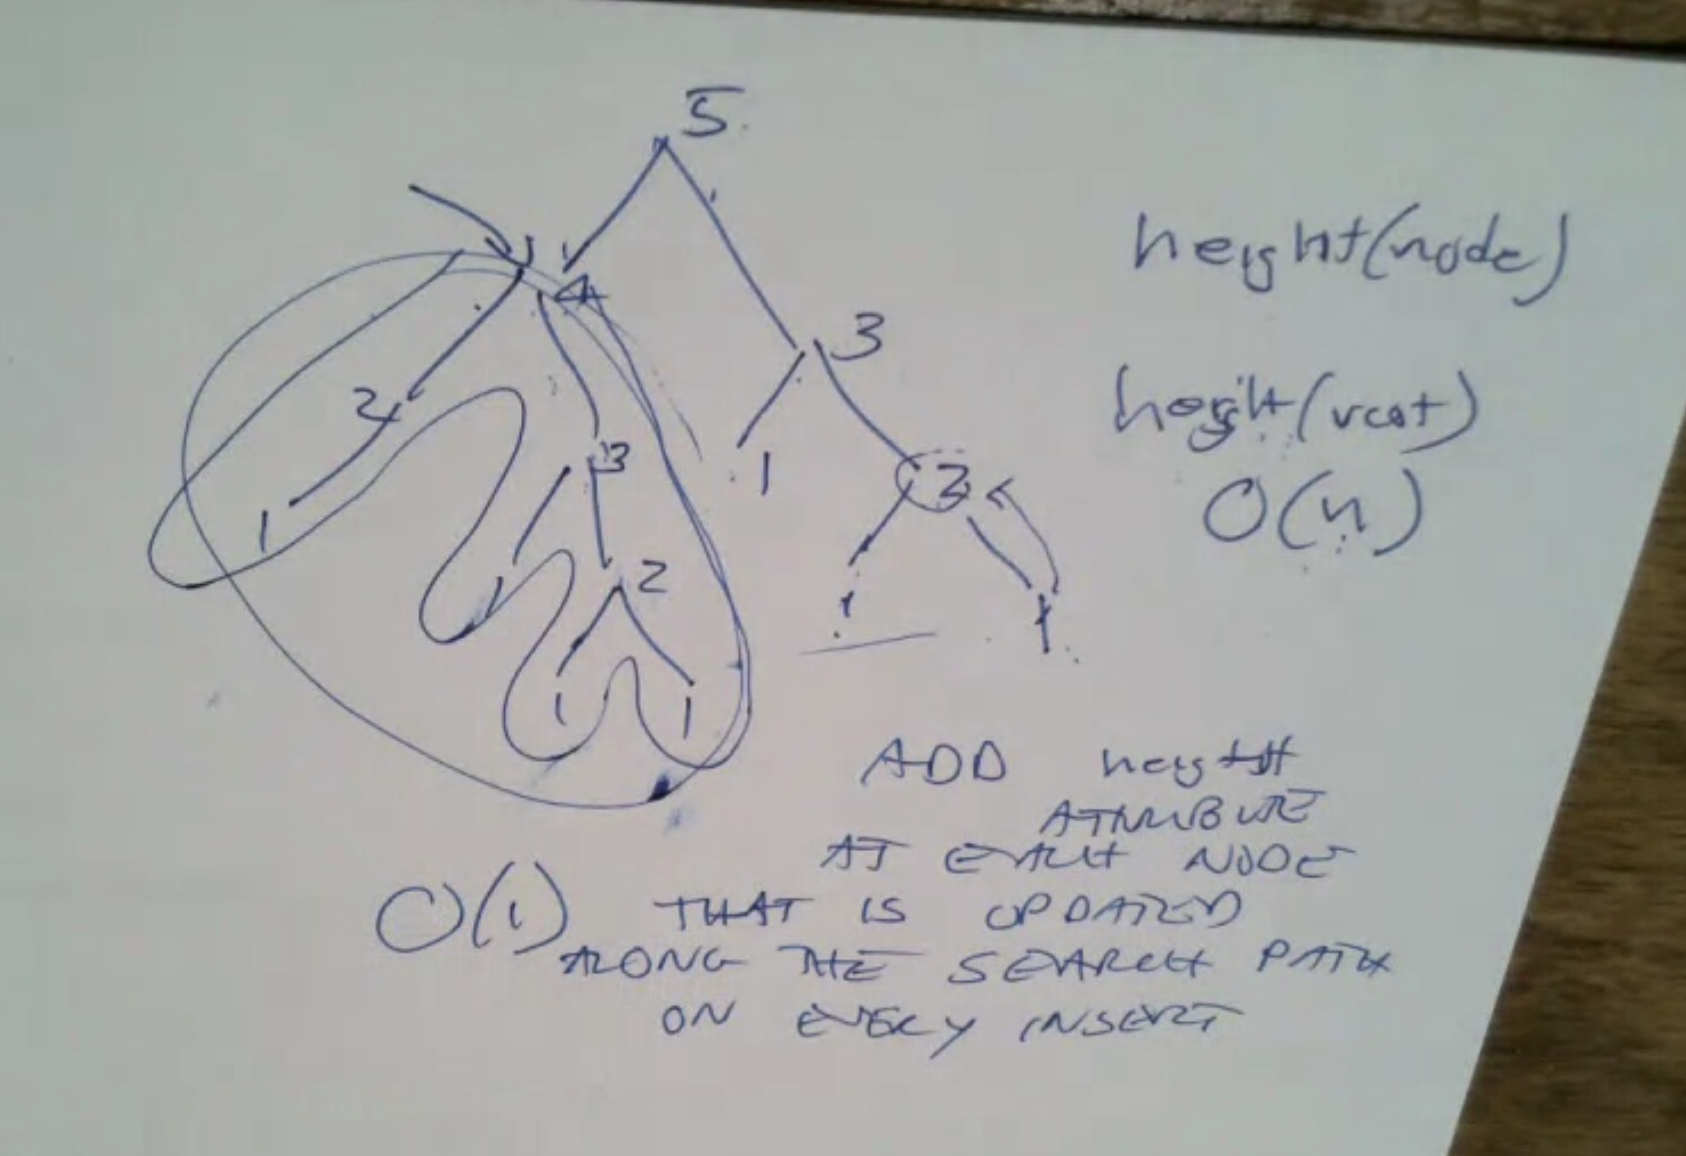 5
4
3
2
3
1
2
1
1
2
1
1
1
1
1
height(node)
height(root)
O(n)
ADD height
ATTRIBUTE
AT EACH NODE
O(1) THAT IS UPDATED
ALONG THE SEARCH PATH
ON EVERY INSERT